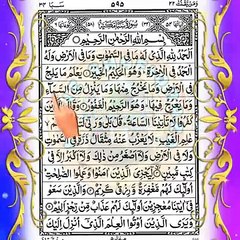 وَمَنْ يَّقْنُتْ ٢٢ ٥٩٥ سَبَا ٣٤
بِسْمِ اللّٰهِ الرَّحْمٰنِ الرَّحِيْمِ
اَلْحَمْدُ لِلّٰهِ الَّذِيْ لَهٗ مَا فِي السَّمٰوٰتِ وَمَا فِي الْاَرْضِ وَلَهُ
الْحَمْدُ فِي الْاٰخِرَةِ وَهُوَ الْحَكِيْمُ الْخَبِيْرُ يَعْلَمُ مَا يَلِجُ
فِي الْاَرْضِ وَمَا يَخْرُجُ مِنْهَا وَمَا يَنْزِلُ مِنَ السَّمَآءِ
وَمَا يَعْرُجُ فِيْهَا وَهُوَ الرَّحِيْمُ الْغَفُوْرُ
كَفَرُوْا لَا تَاْتِيْنَا السَّاعَةُ
عٰلِمِ الْغَيْبِ لَا يَعْزُبُ عَنْهُ مِثْقَالُ ذَرَّةٍ فِي السَّمٰوٰتِ
وَلَا فِي الْاَرْضِ وَلَآ اَصْغَرُ مِنْ ذٰلِكَ وَلَآ اَكْبَرُ اِلَّا فِيْ
كِتٰبٍ مُّبِيْنٍ لِّيَجْزِيَ الَّذِيْنَ اٰمَنُوْا وَعَمِلُوا الصّٰلِحٰتِ
اُولٰٓئِكَ لَهُمْ مَّغْفِرَةٌ وَّرِزْقٌ كَرِيْمٌ وَالَّذِيْنَ سَعَوْ
فِيْٓ اٰيٰتِنَا مُعٰجِزِيْنَ اُولٰٓئِكَ لَهُمْ عَذَابٌ مِّنْ رِّجْزٍ اَلِيْمٌ
وَيَرَى الَّذِيْنَ اُوْتُوا الْعِلْمَ الَّذِيْٓ اُنْزِلَ اِلَيْكَ